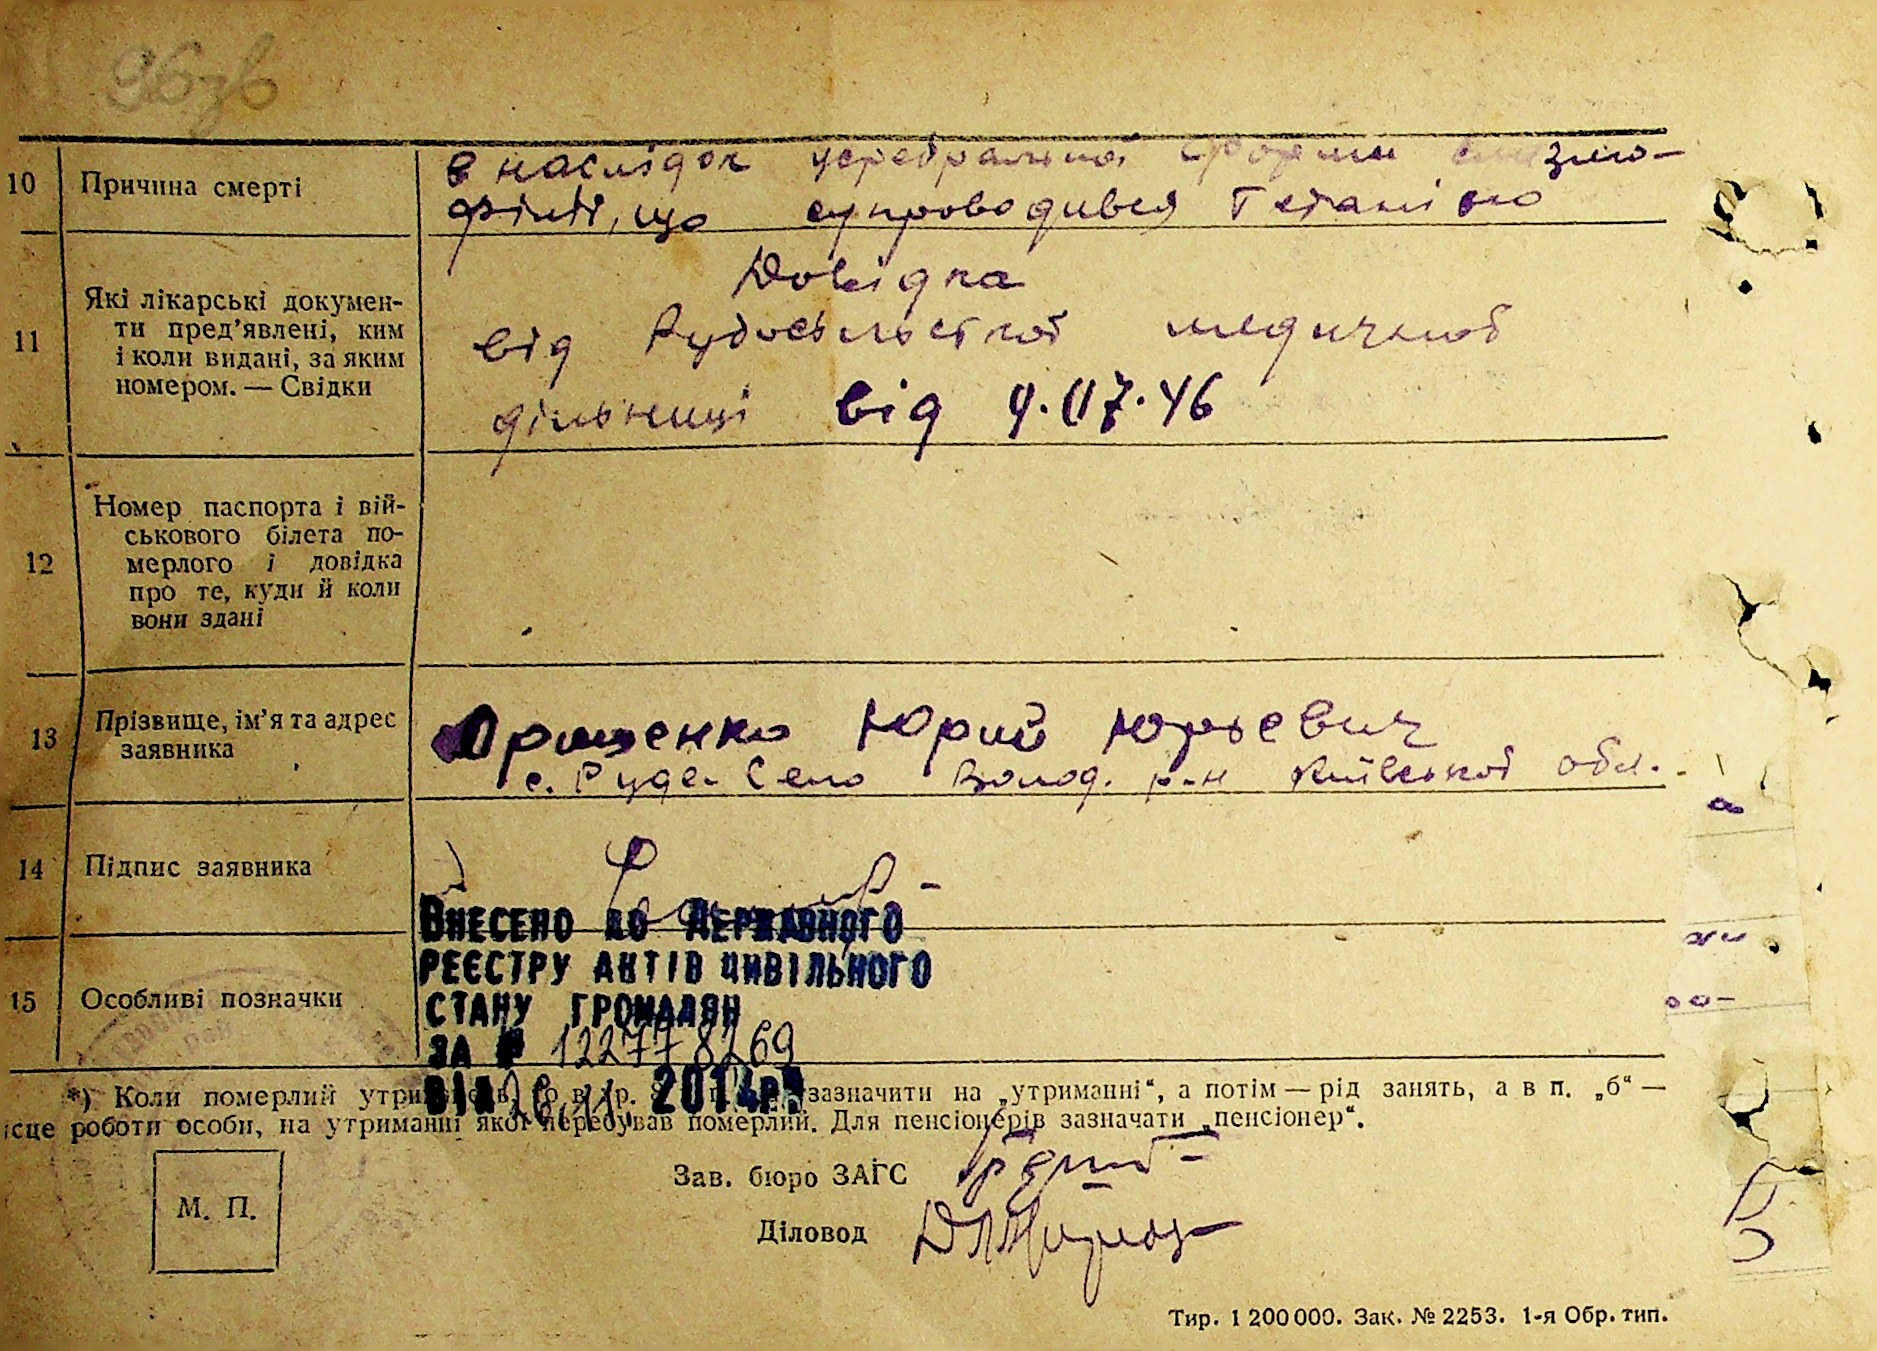 10 Причина смерті
в наслідок церебральної форми
що супроводився Тетанією
11 Які лікарські докумен-
ти пред’явлені, ким
і коли видані, за яким
номером. — Свідки
Довідка
від Рудосільської медичної
дільниці від 9.07.46
12 Номер паспорта і вій-
ськового білета по-
мерлого і довідка
про те, куди й коли
вони здані
13 Прізвище, ім’я та адрес
заявника
Юрий Юрьевич
с. Руде Село Волод. р-н Київської обл.
14 Підпис заявника
15 Особливі позначки
ВНЕСЕНО ДО ДЕРЖАВНОГО
РЕЄСТРУ АКТІВ ЦИВІЛЬНОГО
СТАНУ ГРОМАДЯН
ЗА № 122778269
ВІД 2014р.
*) Коли померлий зазначити на „утриманні“, а потім — рід занять, а в п. „б“ —
ісце роботи особи, на утриманні якої перебував померлий. Для пенсіонерів зазначати „пенсіонер“.
М. П.
Зав. бюро ЗАГС
Діловод
Тир. 1 200 000. Зак. № 2253. 1-я Обр. тип.